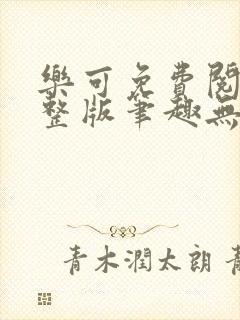 樂可免費閱
整版筆趣無
青木潤太朗